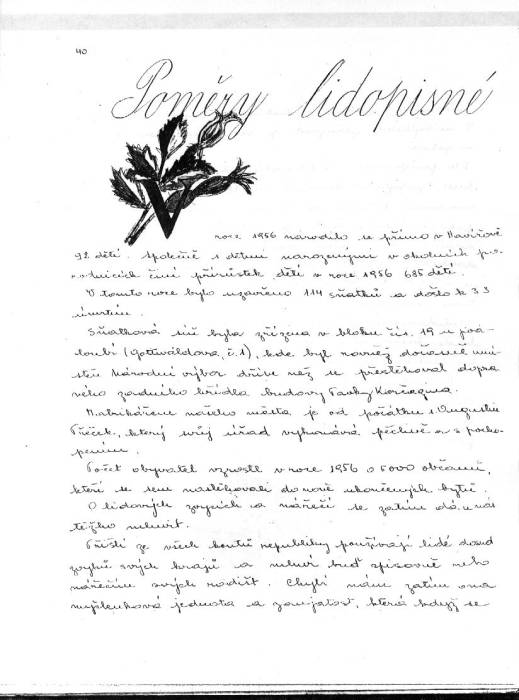 40
Poměry lidopisné
V roce 1956 narodilo se přímo v Havířově
92 dětí. Společně s dětmi narozenými v okolních po-
rodnicích činí přírůstek dětí v roce 1956 685 dětí.
V tomto roce bylo uzavřeno 114 sňatků a došlo k 33
úmrtím.
Sňatková síň byla zřízena v bloku čís. 19 u pod-
loubí (Gottwaldova č. 1), kde byl rovněž dočasně umí-
stěn Národní výbor dříve než se přestěhoval do pra-
vého zadního křídla budovy Pavky Korčagina.
Matrikářem našeho města je od počátku s. Augustin
Fříček, který svůj úřad vykonává pečlivě a s pocho-
pením.
Počet obyvatel vzrostl v roce 1956 o 5000 občanů,
kteří se sem nastěhovali do nově ukončených bytů.
O lidových zvycích a nářečí se zatím dá u nás
těžko mluvit.
Přišlí ze všech koutů republiky používají lidé dosud
zvyků svých krajů a mluví buď spisovně nebo
nářečím svých rodišť. Chybí nám zatím ona
myšlenková jednota a zaujatost, která když se